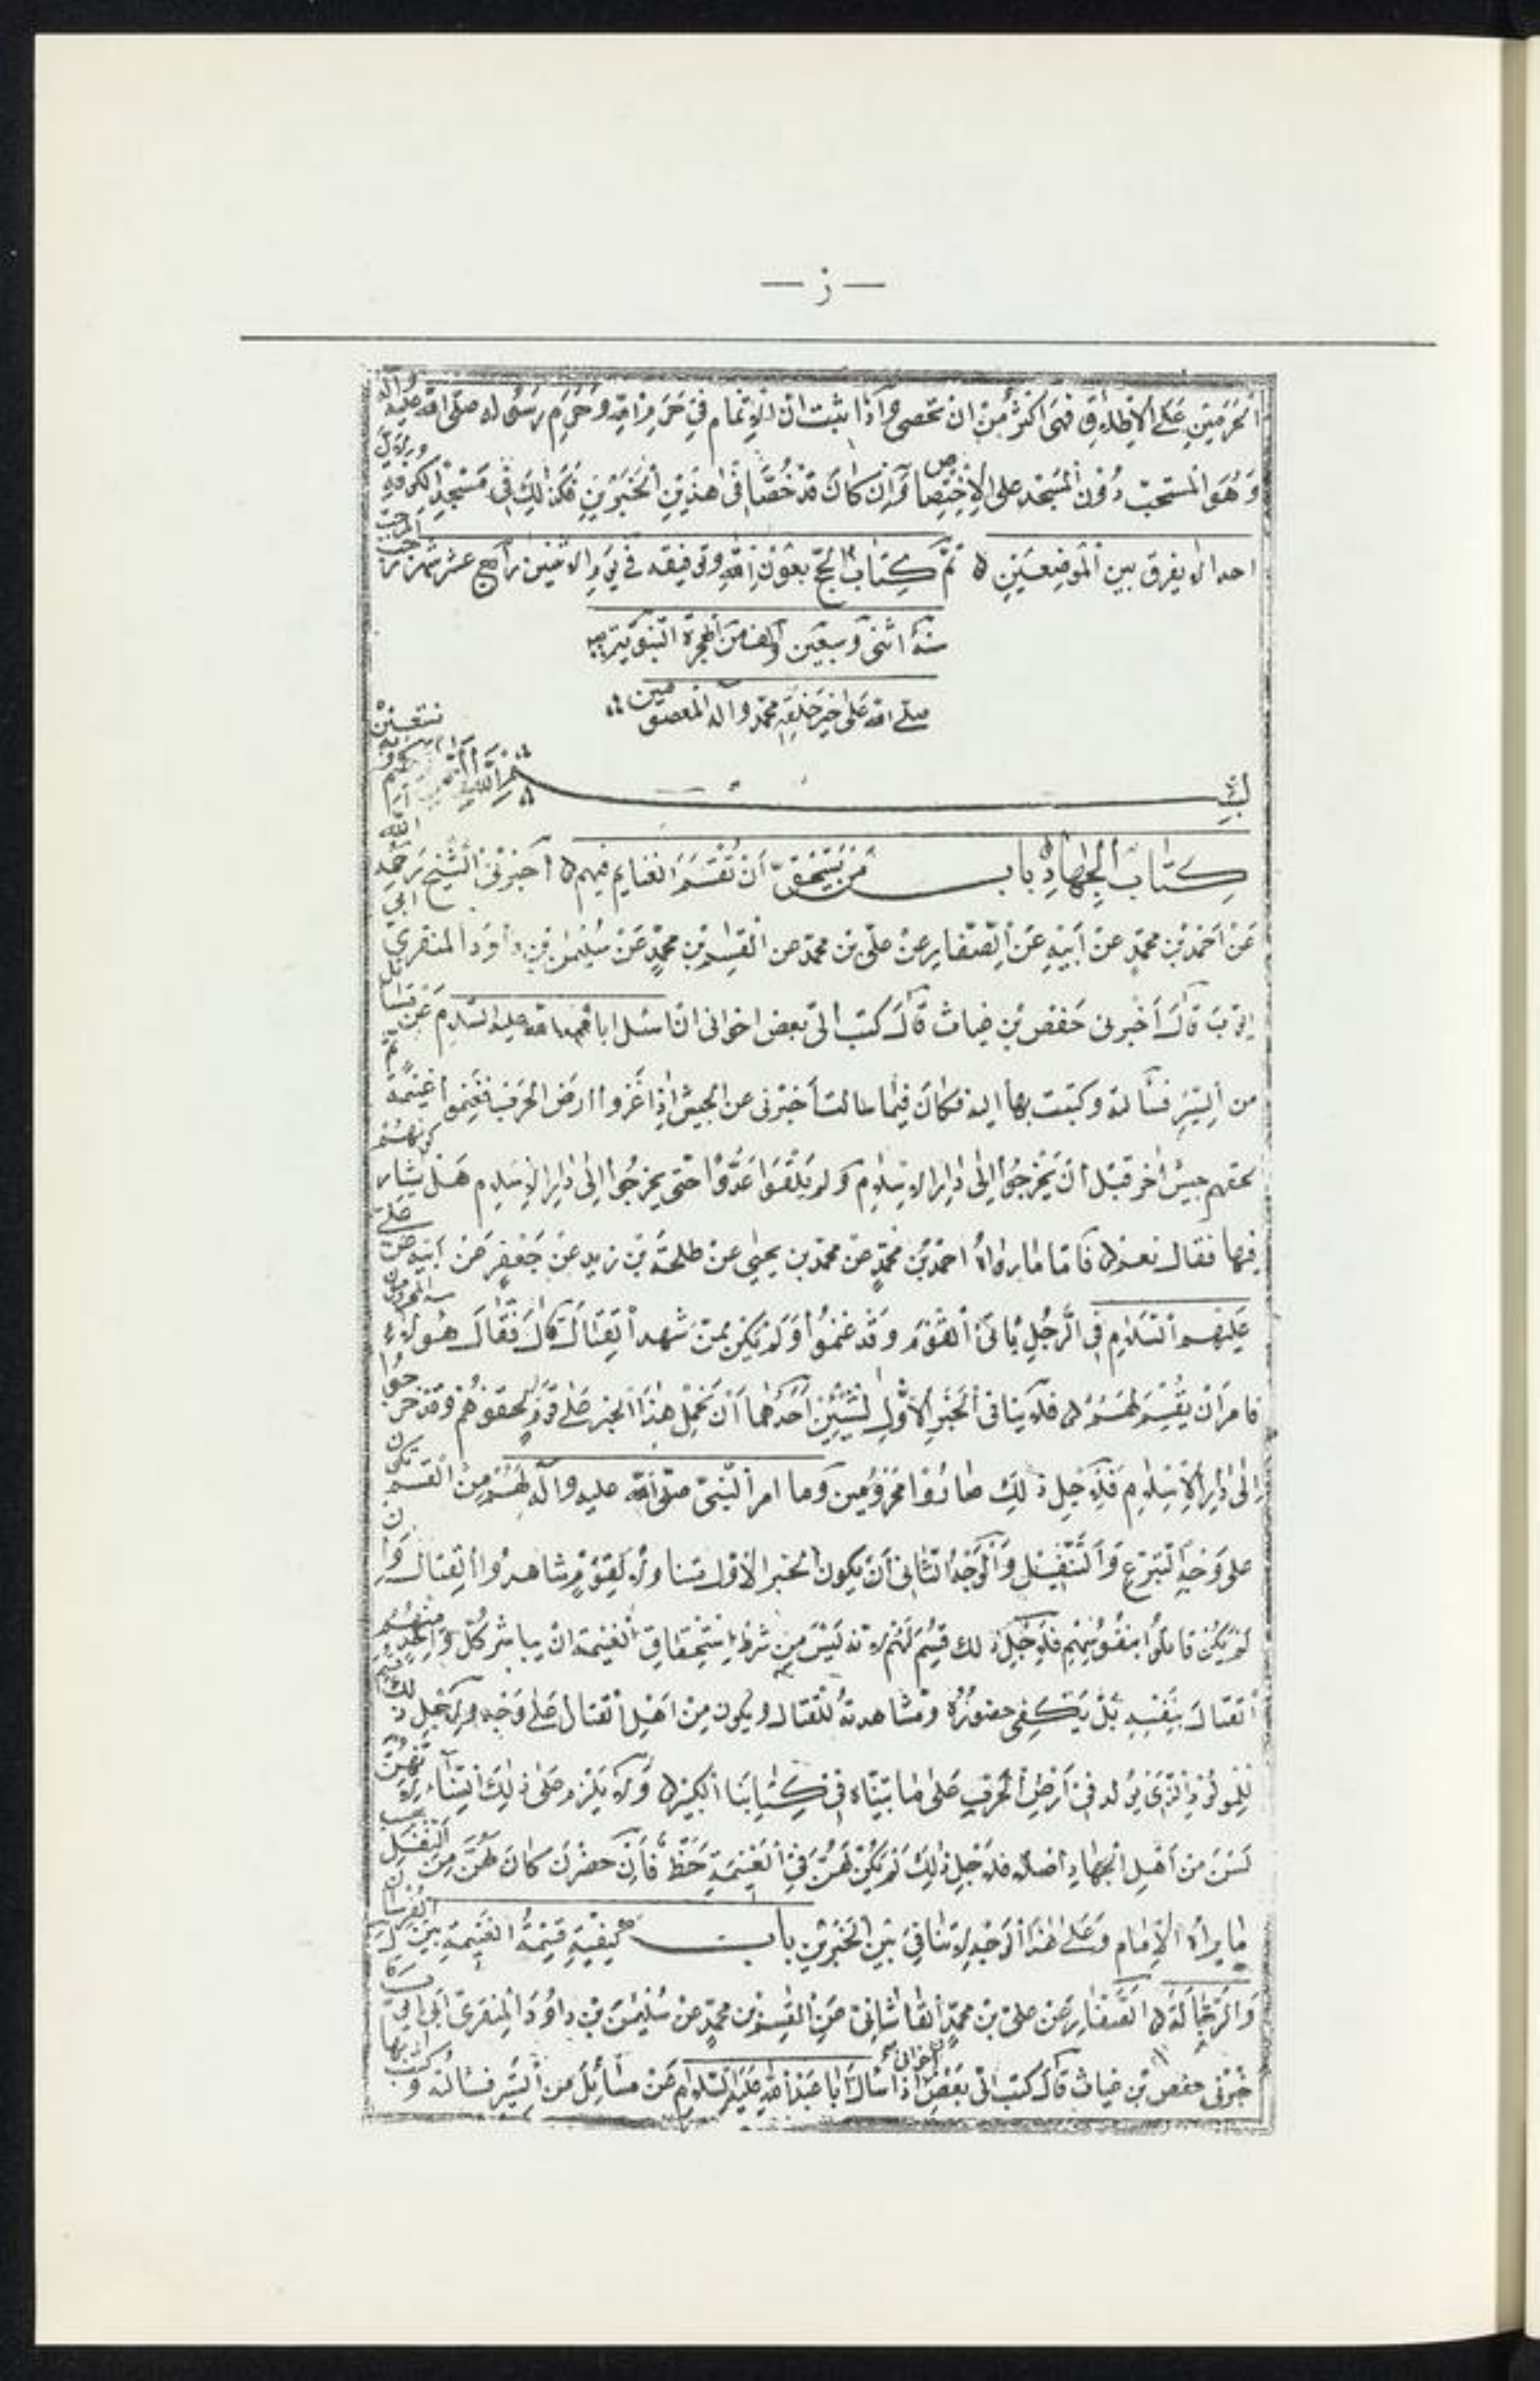 — ز —
الحَرَمَيْنِ عَلَى الاِطلاقِ فهىَ اكثرُ مِنْ ان تحصى وَاذا ثبت ان الاِتمام فِي حَرَمِ اللهِ وَحَرَمِ رَسُولِه صلى الله عليه وآله
وَهُوَ المستحبّ دُون المَسْجد على الاِختِصاص وَاِن كانَ قَدْ خُصَّا فى هذيْنِ الْخَبَرَيْنِ فكذلِكَ فِى مَسْجِدِ الكوفةِ
احداً لا يفرق بين الْمَوضِعَيْنِ تمَّ كِتاب الحجّ بعَوْنِ اللهِ وتوفيقه في يَومِ الاثنين رابع عشر شهر رجب المرجب
سنة اثنى وسبعين والف من الهجرة النبويّة
صلى الله عَلى خير خلقِهِ محمّد وآله المعصومين
بِسْمِ اللهِ الرَّحْمنِ الرَّحيمِ
كِتابُ الجِهادِ باب مَن يَسْتَحِقّ اَنْ تُقْسَمَ الغنايم فيهم اَخبرَنى الشّيخ رَحِمَه الله
عَنْ اَحْمَد بْنِ محمّدٍ عنْ اَبيْهِ عَنِ الصّفارِ عنْ علىّ بن محمّد عن القاسِم بنِ محمّدٍ عَنْ سُلَيْمٰن بْنِ داوُدَ المنقرىّ ابى
ايّوبَ قالَ اَخْبرنى حَفْص بْنِ غياث قالَ كتب الىّ بعض اخوانى ان اسئل ابا عبد الله عليه السّلام عَنْ مسائل
من السّيَرِ فسَألته وكتبت بها اليه فكانَ فيما سالت أخبرنى عن الجيش اِذا غَزوا ارضَ الحَرْب فغَنِموا غنيمة ثم
لحقهم جيش اخر قبْل اَنْ يَخْرجُوا اِلى دارِ الاِسْلامِ وَلم يَلْقَوا عَدُوًّا حتّى يخرجُوا اِلى دارِ الاِسْلامِ هَلْ يشاركونهم
فيها فقال نعم فَاما ما رواهُ احمَدُ بْن محمّدٍ عَنْ محمّد بن يحيٰى عنْ طلحة بْن زيد عَنْ جَعْفرٍ عَنْ اَبيه عنْ علىٍّ
عَلَيْهِم السَّلامِ فى الرَّجُلِ يَأتى الْقَوْمَ وَقَدْ غنمُوا وَلَمْ يَكن ممّن شَهِد القِتالَ قالَ فَقالَ هؤلاءِ المحرومون
فامرَ اَنْ يُقْسَمَ لَهُمْ فلا ينافى الْخَبَر الاَوّل لشَيْئَيْنِ اَحَدُهما اَنْ نَحْمِلَ هٰذا الخبر عَلٰى قومٍ لحقوهُمْ وقد خرجوا
اِلى دارِ الاِسْلامِ فَلِاَجْلِ ذلِكَ صارُوا محرومين وَما امر النّبىّ صلّى الله عليه وآله لهُمْ مِنَ القسم يكون
على وَجْهِ التبَرّع وَالتنفيل وَالوَجْهُ الثانى اَنْ يكون الخبر الاوّل متناولاً لِقَوْمٍ شاهدُوا القتال وَاِن
لَمْ يكُنْ قاتلُوا بنفُوسِهِم فلِاَجلِ ذلك قسم لَهُم لانه لَيْسَ مِنْ شرطِ استحقاقِ الغنيمة ان يباشر كل واحدٍ منهم
القتال بنفسِهِ بَلْ يَكفِى حضورُهُ وَمشاهدتهُ للقتال ويكون مِنْ اهلِ القتال عَلٰى وَجْه ولاجل ذلك قسم
لِلمولُودِ الذى يُولد فى اَرْضِ الحَرْبِ عَلى ما بيّناه فى كتابنا الكبير وَلا يَلزم عَلٰى ذلِكَ النِّسَآءُ لانهنّ
لَسنَ مِن اهلِ الجهادِ اَصلاً فلِاَجلِ ذلِكَ لَمْ يكُنْ لَهُنَّ فى الغنيمَةِ حَظّ فاِنْ حضرْنَ كان لَهُنَّ مِنَ النفل
ما يراهُ الاِمام وَعَلٰى هٰذا الوَجْهِ لا تنافىَ بَيْن الْخَبَرَيْنِ باب كيْفِيّةِ قِسْمَةِ الغَنيمَةِ بَيْنَ الفرسان
وَالرّجّالةِ الصَّفّار عَنْ علىّ بن محمّد القاشانىّ عَنِ القاسِم بْن محمّدٍ عنْ سُلَيْمٰنَ بْن داوُدَ المنقرىّ ابى ايوب
خبرنى حفص بْن غياث قالَ كتب الىّ بَعْض اخوانى اَنْ اسالَ ابا عَبْد اللهِ عَلَيْهِ السَّلام عَنْ مسائِلَ من السِّيَرِ فسَالته وكتبت بها